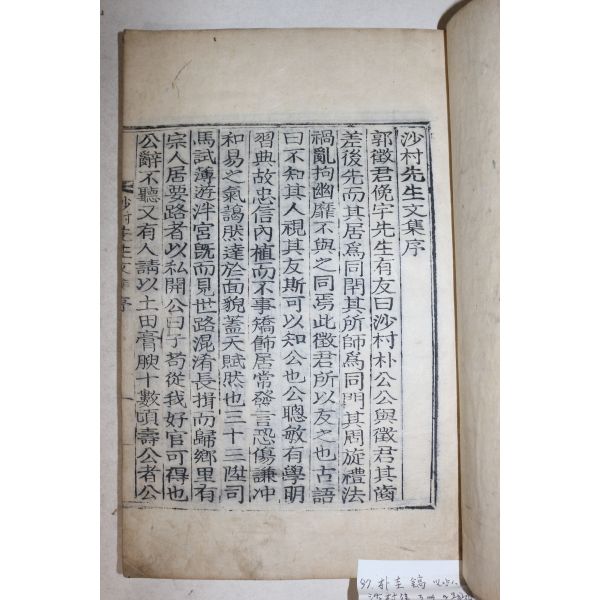 沙村先生文集序
郭徵君俛宇先生有友曰沙村朴公公與徵君其齒
差後先而其居爲同閈其所師爲同門其周旋禮法
禍亂拘幽靡不與之同焉此徵君所以友之也古語
曰不知其人視其友斯可以知公也公聰敏有學明
習典故忠信內植而不事矯飾居常發言恐傷謙冲
和易之氣藹然達於面貌蓋天賦然也三十三陞司
馬試薄遊泮宮旣而見世路混淆長揖而歸鄉里有
宗人居要路者以私開公曰子苟從我好官可得也
公辭不聽又有人請以土田膏腴十數頃壽公者公
沙村先生文集序
97. 朴圭鎬
沙村集